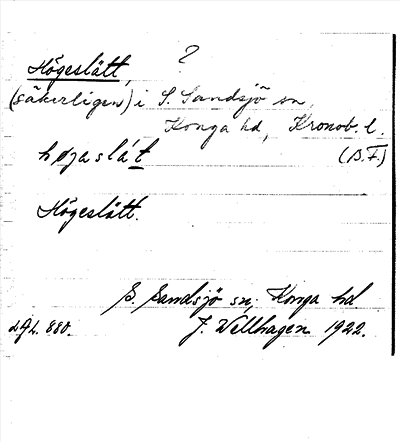 Högeslätt, ?
(säkerligen) i S. Sandsjö sn,
Konga hd, Kronob. l.
høgaslát (B.F)
Högeslätt.
S. Sandsjö sn, Konga hd
LGL. 880. J. Wellhagen 1922.